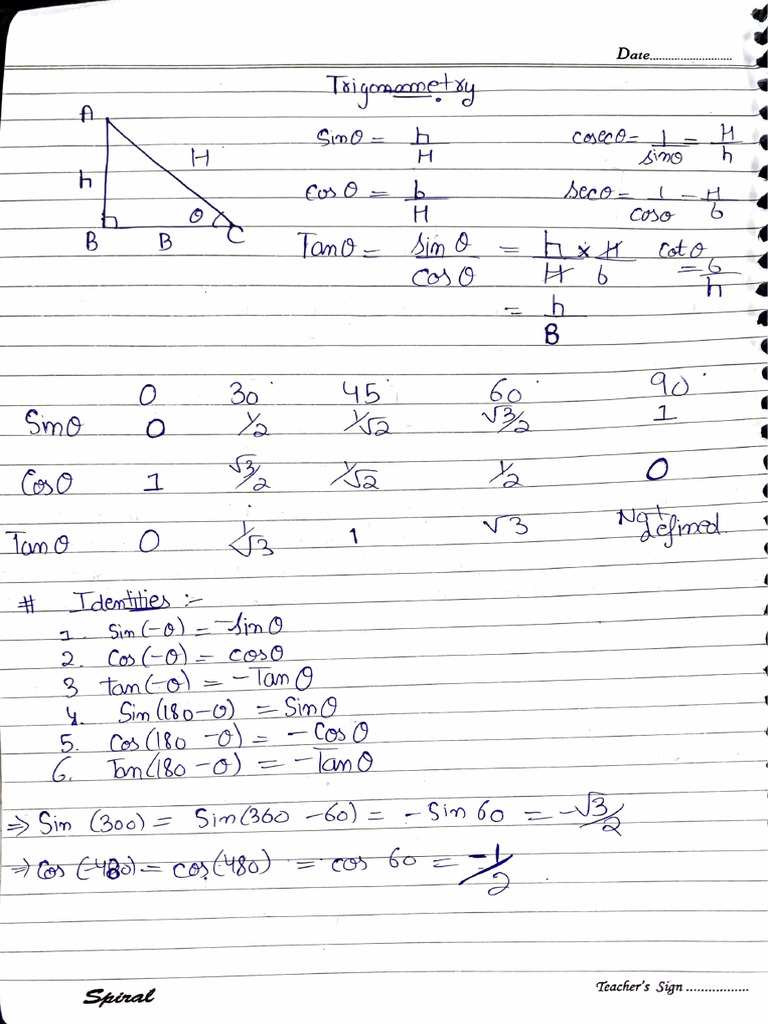 Date..............................
Trigonometry
A
H
h
θ
B B C
Sinθ = h/H
cosecθ = 1/sinθ = H/h
cosθ = b/H
secθ = 1/cosθ = H/b
Tanθ = sinθ/cosθ = h/H × H/b
cotθ = b/h
= h/B
0 30° 45° 60° 90°
Sinθ 0 1/2 1/√2 √3/2 1
Cosθ 1 √3/2 1/√2 1/2 0
Tanθ 0 1/√3 1 √3 Not defined.
# Identities :-
1. Sin(-θ) = -sinθ
2. Cos(-θ) = cosθ
3 tan(-θ) = -Tanθ
4. Sin(180-θ) = Sinθ
5. Cos(180 -θ) = - Cosθ
6. Tan(180 -θ) = -Tanθ
⇒ Sin (300) = Sin(360 -60) = - Sin 60 = -√3/2
⇒ Cos (-480) = cos(480) = cos 60 = -1/2
Spiral
Teacher's Sign ..................